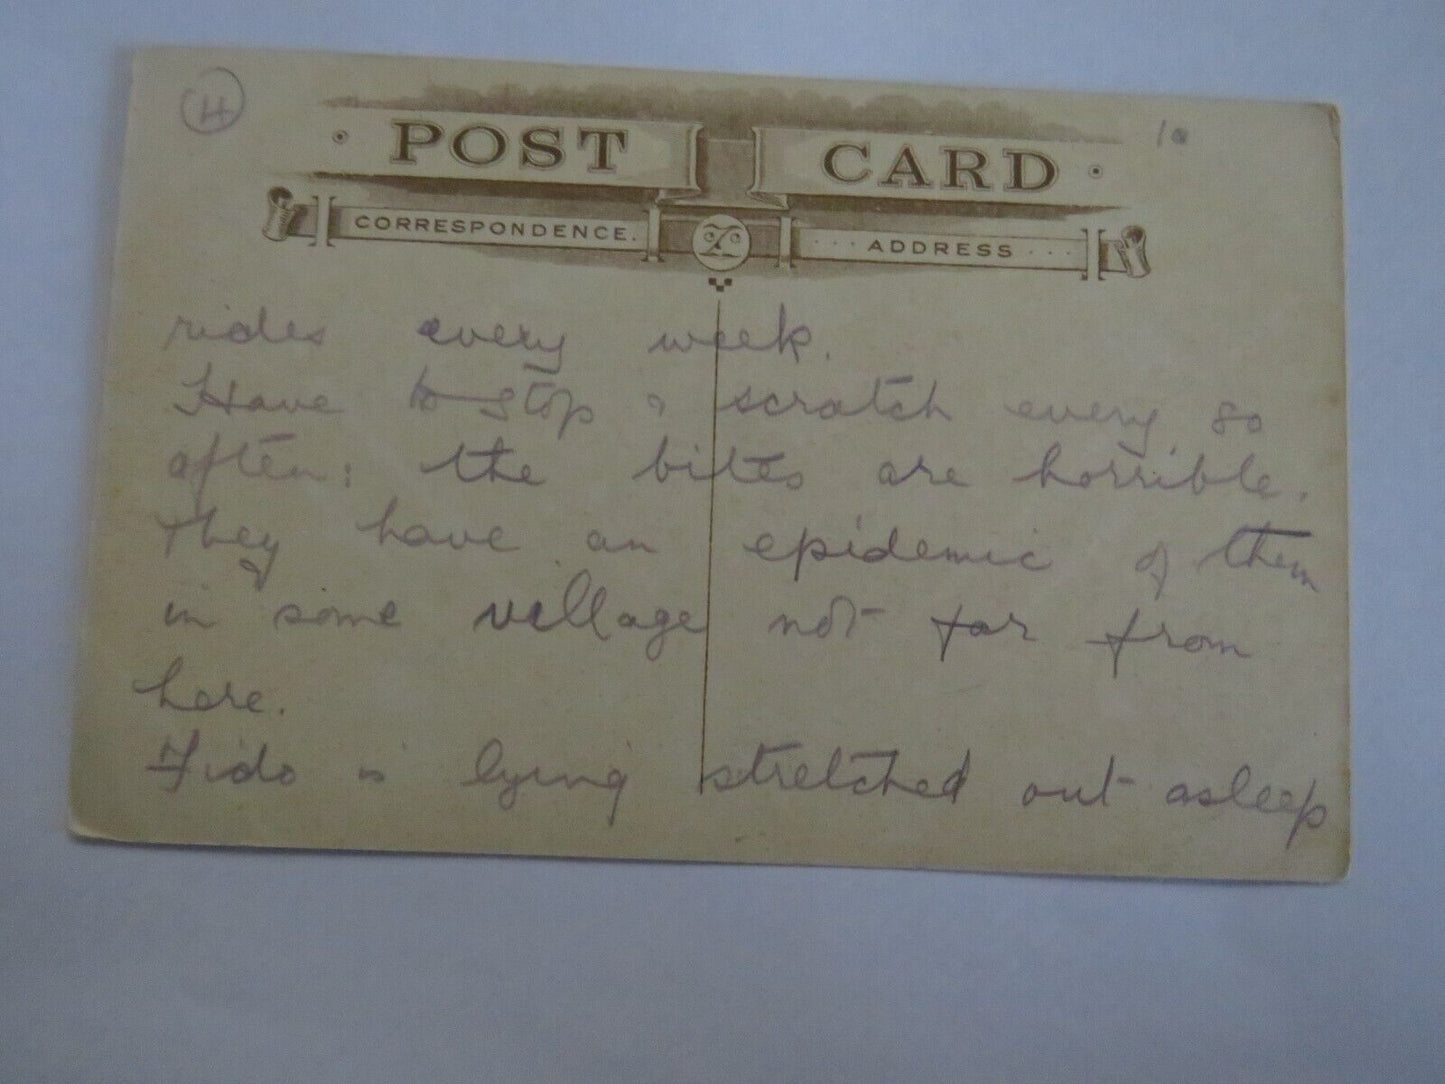 4
POST CARD
10
CORRESPONDENCE.
ADDRESS
rides every week.
Have to stop & scratch every so
often: the bites are horrible.
They have an epidemic of them
in some village not far from
here.
Fido is lying stretched out asleep